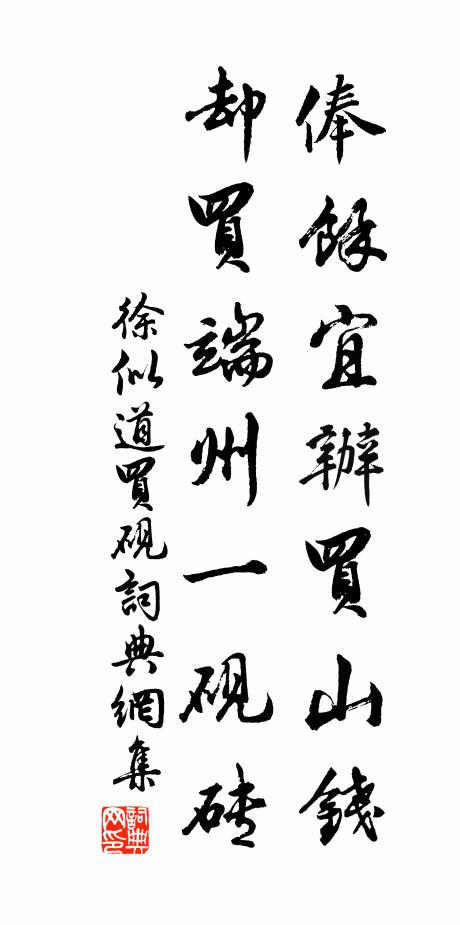 俸餘宜辦買山錢
却買端州一硯磚
徐似道買硯詞典網集
詞典网印